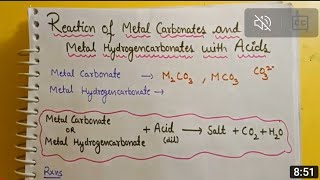 Reaction of Metal Carbonates and
Metal Hydrogencarbonates with Acids
Metal Carbonate → M₂CO₃ , MCO₃ CO₃²⁻
Metal Hydrogencarbonate →
Metal Carbonate
OR
Metal Hydrogencarbonate + Acid (dil) → Salt + CO₂ + H₂O
Rxns
8:51